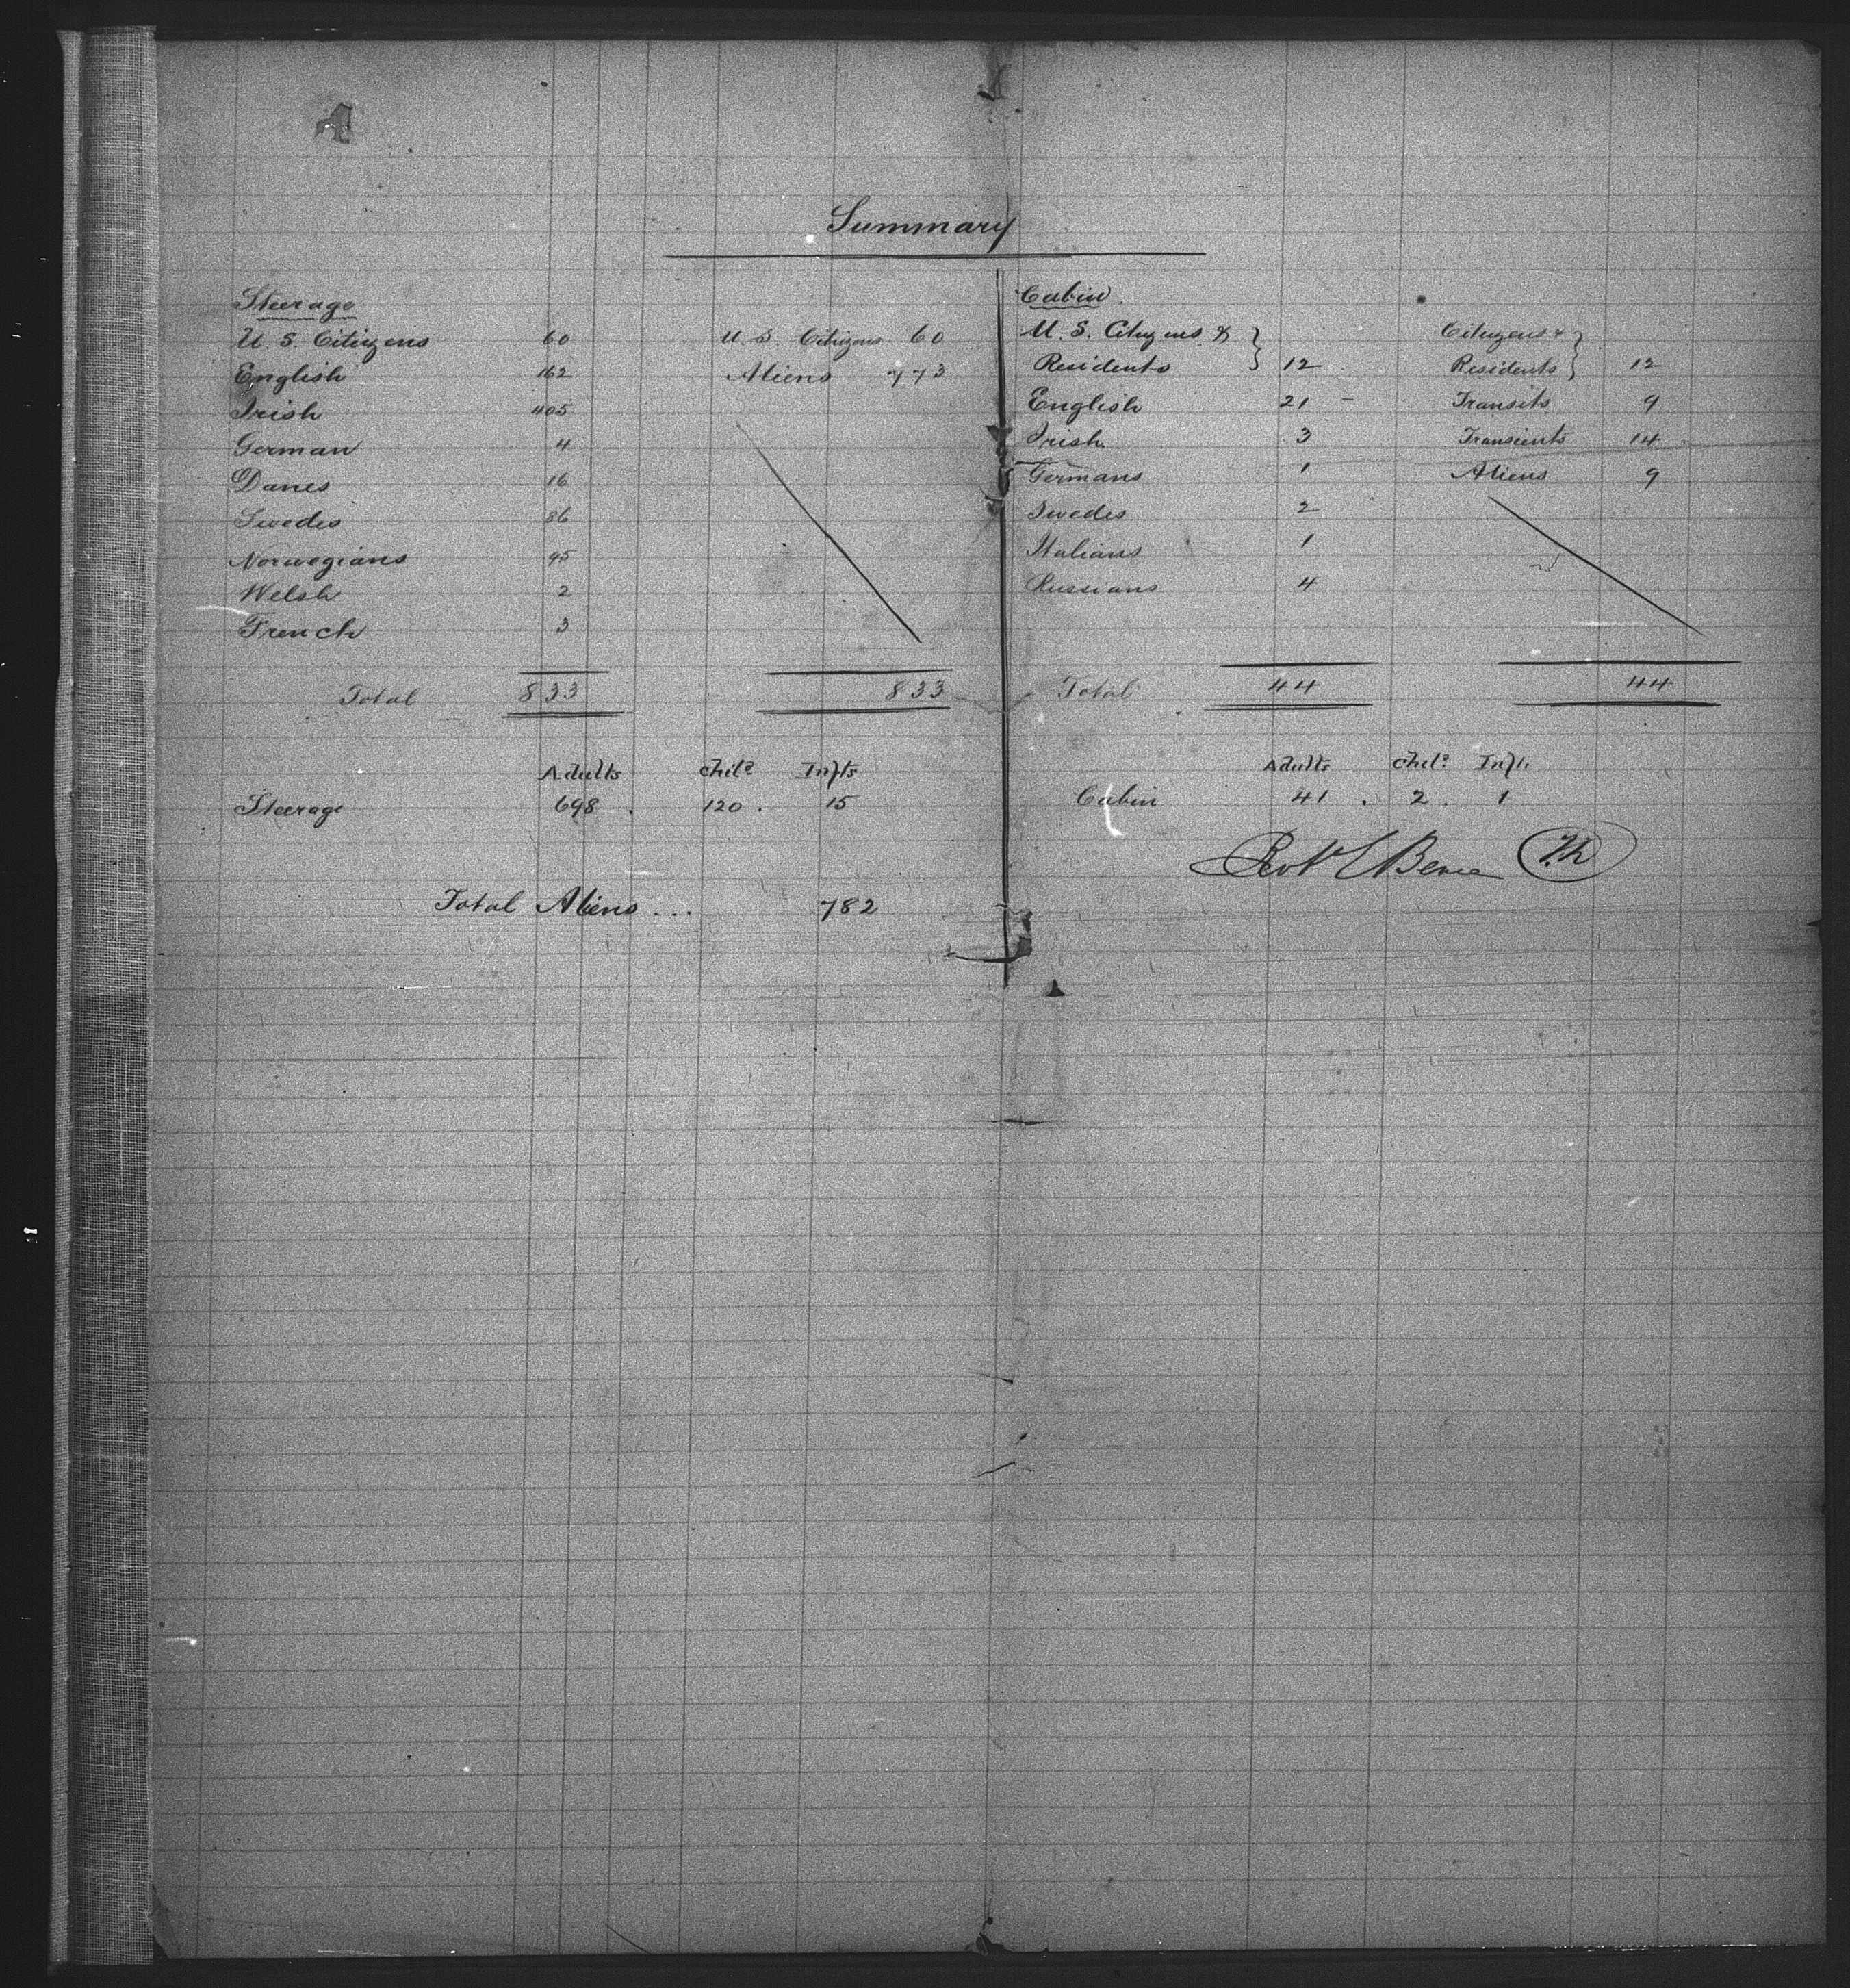 A
Summary
Steerage
U. S. Citizens 60 U. S. Citizens 60
English 162 Aliens 773
Irish 405
German 4
Danes 16
Swedes 86
Norwegians 95
Welsh 2
French 3
Total 833 833
Adults Childn Infts
Steerage 698 . 120 . 15
Total Aliens ... 782
Cabin
U. S. Citizens & } Citizens & }
Residents } 12 Residents } 12
English 21 - Transits 9
Irish 3 Transients 14
Germans 1 Aliens 9
Swedes 2
Italians 1
Russians 4
Total 44 44
Adults Childn Infts
Cabin 41 . 2 . 1
Robt